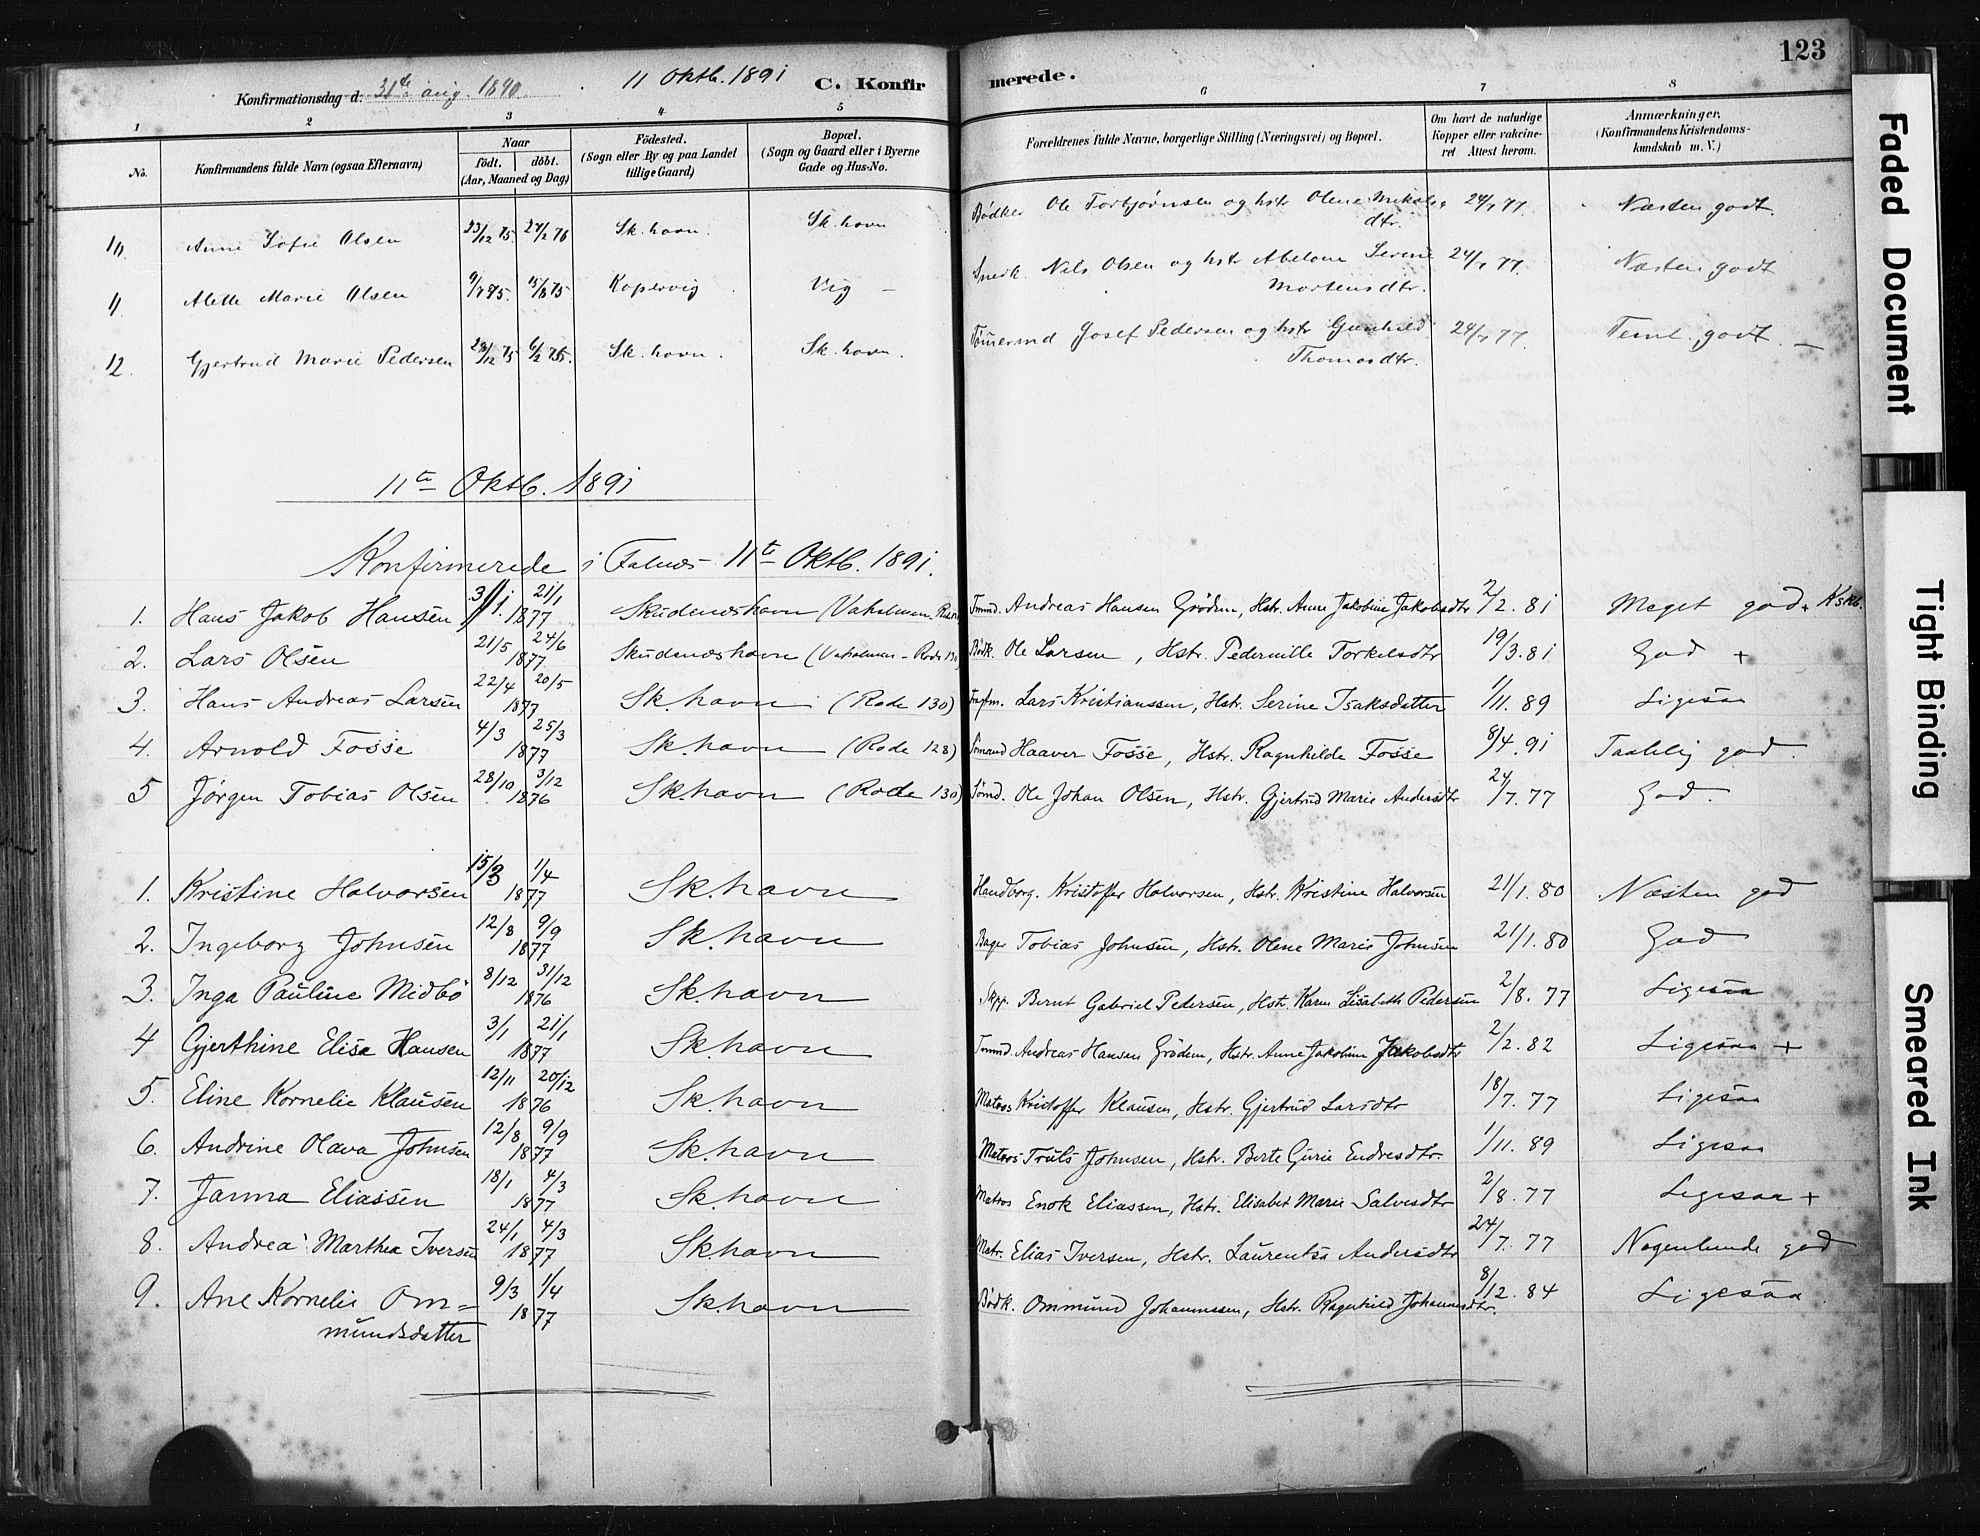 123
Konfirmationsdag d. 31te aug. 1890. 11 Oktb. 1891 C. Konfirmerede.
1 2 3 4 5 6 7 8
No.
Konfirmandens fulde Navn (ogsaa Efternavn)
Naar
født. døbt.
(Aar, Maaned og Dag)
Fødested.
(Sogn eller By og paa Landet
tillige Gaard)
Bopæl.
(Sogn og Gaard eller i Byerne
Gade og Hus-No.
Forældrenes fulde Navne, borgerlige Stilling (Næringsvei) og Bopæl.
Om havt de naturlige
Kopper eller vakcine-
ret Attest herom.
Anmærkninger.
(Konfirmandens Kristendoms-
kundskab m. V.)
10 Anne Sofie Olsen 23/12 75. 27/2 76 Sk.havn. Sk.havn Bødker Ole Torbjørnsen og hstr Olene Mikals-
dtr. 24/7 77 Næsten godt.
11 Alette Marie Olsen 9/7 75. 15/8 75 Kopervig Vig — Snedk. Nils Olsen og hstr Abelone Serine
Mortensdtr. 24/7 77 Næsten godt
12. Gjertrud Marie Pedersen 6/2 Sk.havn. Sk.havn. Tømmermd Josef Pedersen og hstr Gunhild
Thomasdtr. 24/7 77 Teml. godt. —
11te Oktb. 1891
Konfirmerede i Falnes 11te Oktb. 1891.
1. Hans Jakob Hansen 3/1. 21/1 1877 Skudeneshavn (Vaholmen - Tmmd. Andreas Hansen Grødem, Hstr. Anne Jakobine Jakobsdtr 2/2. 81 Meget god + Kskb.
2. Lars Olsen 21/5 24/6 1877 Skudeneshavn (Vaholmen - Rode 130 Bødk. Ole Larsen, Hstr. Pedernille Torkelsdtr 19/3. 81 God +
3. Hans Andreas Larsen 22/4 20/5 1877 Sk.havn (Rode 130) Lars Kristianssen, Hstr. Serine Isaksdatter 1/11. 89 Ligesaa
4. Arnold Fosse 4/3 25/3 1877 Sk.havn (Rode 128) Sømand Haaver Fosse, Hstr. Ragnhilde Fosse 8/4. 91 Taalelig god.
5 Jørgen Tobias Olsen 28/10 3/12 1876 Sk.havn (Rode 130) Sømd. Ole Johan Olsen, Hstr. Gjertrud Marie Andersdtr 24/7. 77 God.
1. Kristine Halvorsen 15/3 1/4 1877 Sk.havn Handborg. Kristoffer Halvorsen, Hstr. Kristine Halvorsen 21/1. 80 Næsten god
2. Ingeborg Johnsen 12/8 9/9 1877 Sk.havn Bager Tobias Johnsen, Hstr. Olene Marie Johnsen 21/1. 80 God
3. Inga Pauline Midbø 8/12 31/12 1876 Sk.havn Skpp. Bernt Gabriel Pedersen, Hstr. Karen Lisabeth Pedersen 2/8. 77 Ligesaa
4 Gjerthine Elisa Hansen 3/1 21/1 1877 Sk.havn Tmmd. Andreas Hansen Grødem, Hstr. Anne Jakobine Jakobsdtr 2/2. 82 Ligesaa +
5. Eline Kornelie Klausen 12/11 20/12 1876 Sk.havn Matros Kristoffer Klausen, Hstr. Gjertrud Larsdtr 18/7. 77 Ligesaa
6. Andrine Olava Johnsen 12/8 9/9 1877 Sk.havn Matros Truls Johnsen, Hstr. Berte Gurie Endresdtr. 1/11. 89 Ligesaa
7. Janna Eliassen 18/1 4/3 1877 Sk.havn Matros Enok Eliassen, Hstr. Elisabet Marie Salvesdtr 2/8. 77 Ligesaa +
8. Andrea Marthea Iversen 24/1 4/3 1877 Sk.havn Matr. Elias Iversen, Hstr. Laurentsa Andersdtr 24/7. 77 Nogenlunde god
9. Ane Kornelie Om=
mundsdatter 9/3 1/4 1877 Sk.havn Bødk. Ommund Johannessen, Hstr. Ragnhild Johannesdtr. 8/12. 84 Ligesaa
Faded Document
Tight Binding
Smeared Ink